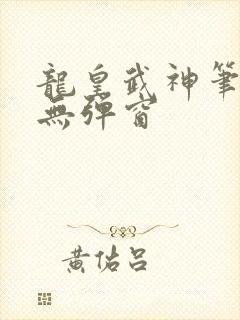 龍皇武神筆
無彈窗
黃佑呂